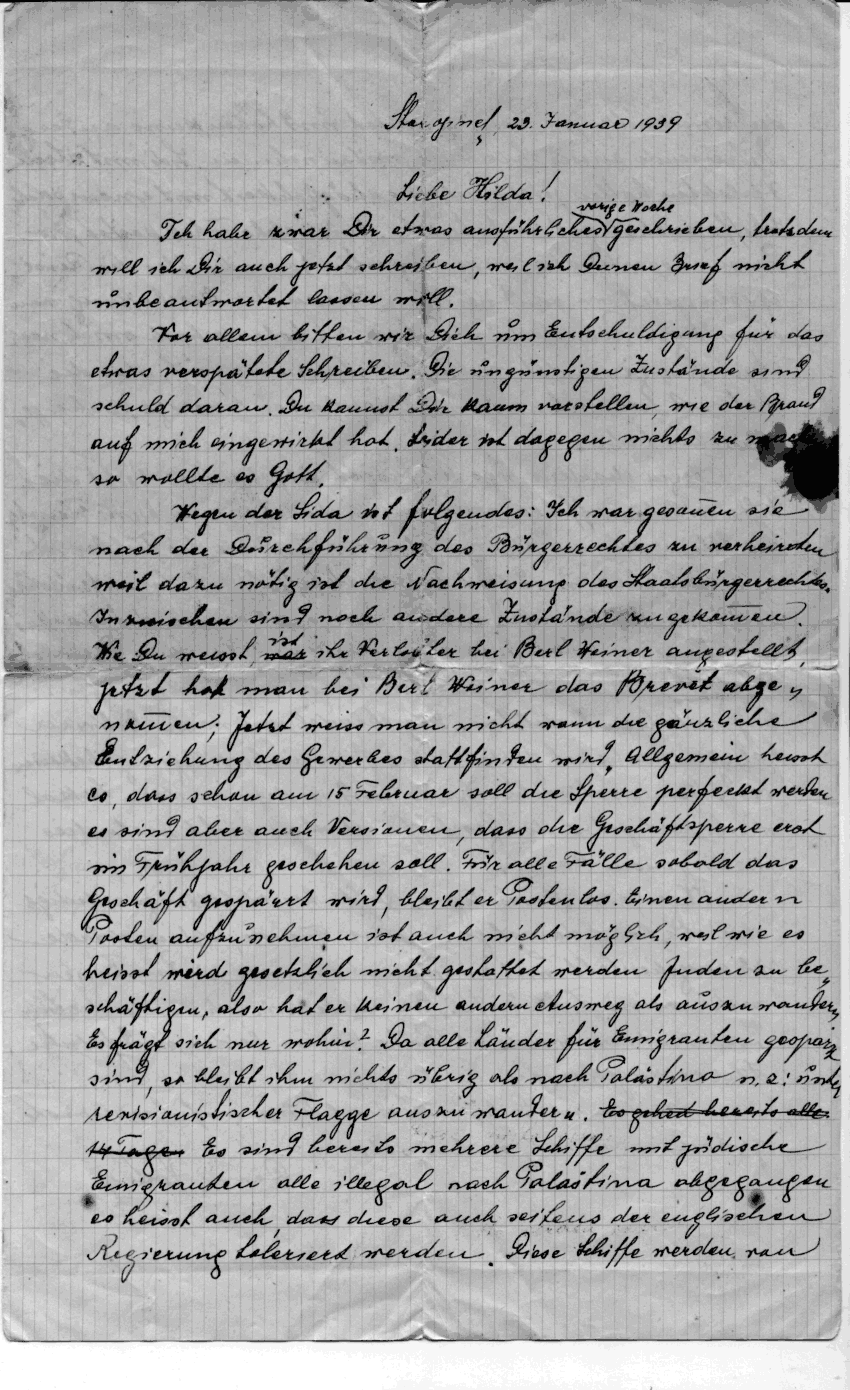 23. Januar 1939
Liebe Hilda!
vorige Woche
Ich habe zwar Dir etwas ausführliches geschrieben, trotzdem
will ich Dir auch jetzt schreiben, weil ich Deinen Brief nicht
unbeantwortet lassen will.
Vor allem bitten wir Dich um Entschuldigung für das
etwas verspätete Schreiben. Die ungünstigen Zustände sind
schuld daran. Du kannst Dir kaum vorstellen, wie der Brand
auf mich eingewirkt hat. Leider ist dagegen nichts zu
so wollte es Gott.
Wegen der Lida ist folgendes: Ich war geson̄en sie
nach der Durchführung des Bürgerrechtes zu verheiraten
weil dazu nötig ist die Nachweisung des Staatsbürgerrechts.
Inzwischen sind noch andere Zustände zugekom̄en.
ist
Wie Du weisst, war ihr Verlobter bei Berl Weiner angestellt,
jetzt hat man bei Berl Weiner das Brevet abge„
nom̄en; Jetzt weiss man nicht wann die gänzliche
Entziehung des Gewerbes stattfinden wird. Allgemein heisst
es, dass schon am 15 Februar soll die Sperre perfeckt werden
es sind aber auch Versionen, dass die Geschäftsperre erst
im Frühjahr geschehen soll. Für alle Fälle sobald das
Geschäft gespärrt wird, bleibt er Postenlos. Einen andern
Posten aufzunehmen ist auch nicht möglich, weil wie es
heisst wird gesetzlich nicht gestattet werden Juden zu be„
schäftigen, also hat er keinen andern Ausweg als auszuwandern,
Es frägt sich nur wohin? Da alle Länder für Emigranten gespärrt
sind, so bleibt ihm nichts übrig als nach Palästina u. z: unter
revisionistischer Flagge auszuwandern. Es gehed bereits alle
14 Tage. Es sind bereits mehrere Schiffe mit jüdische
Emigranten alle illegal nach Palästina abgegangen
es heisst auch, dass diese auch seitens der englischen
Regierung toleriert werden. Diese Schiffe werden von